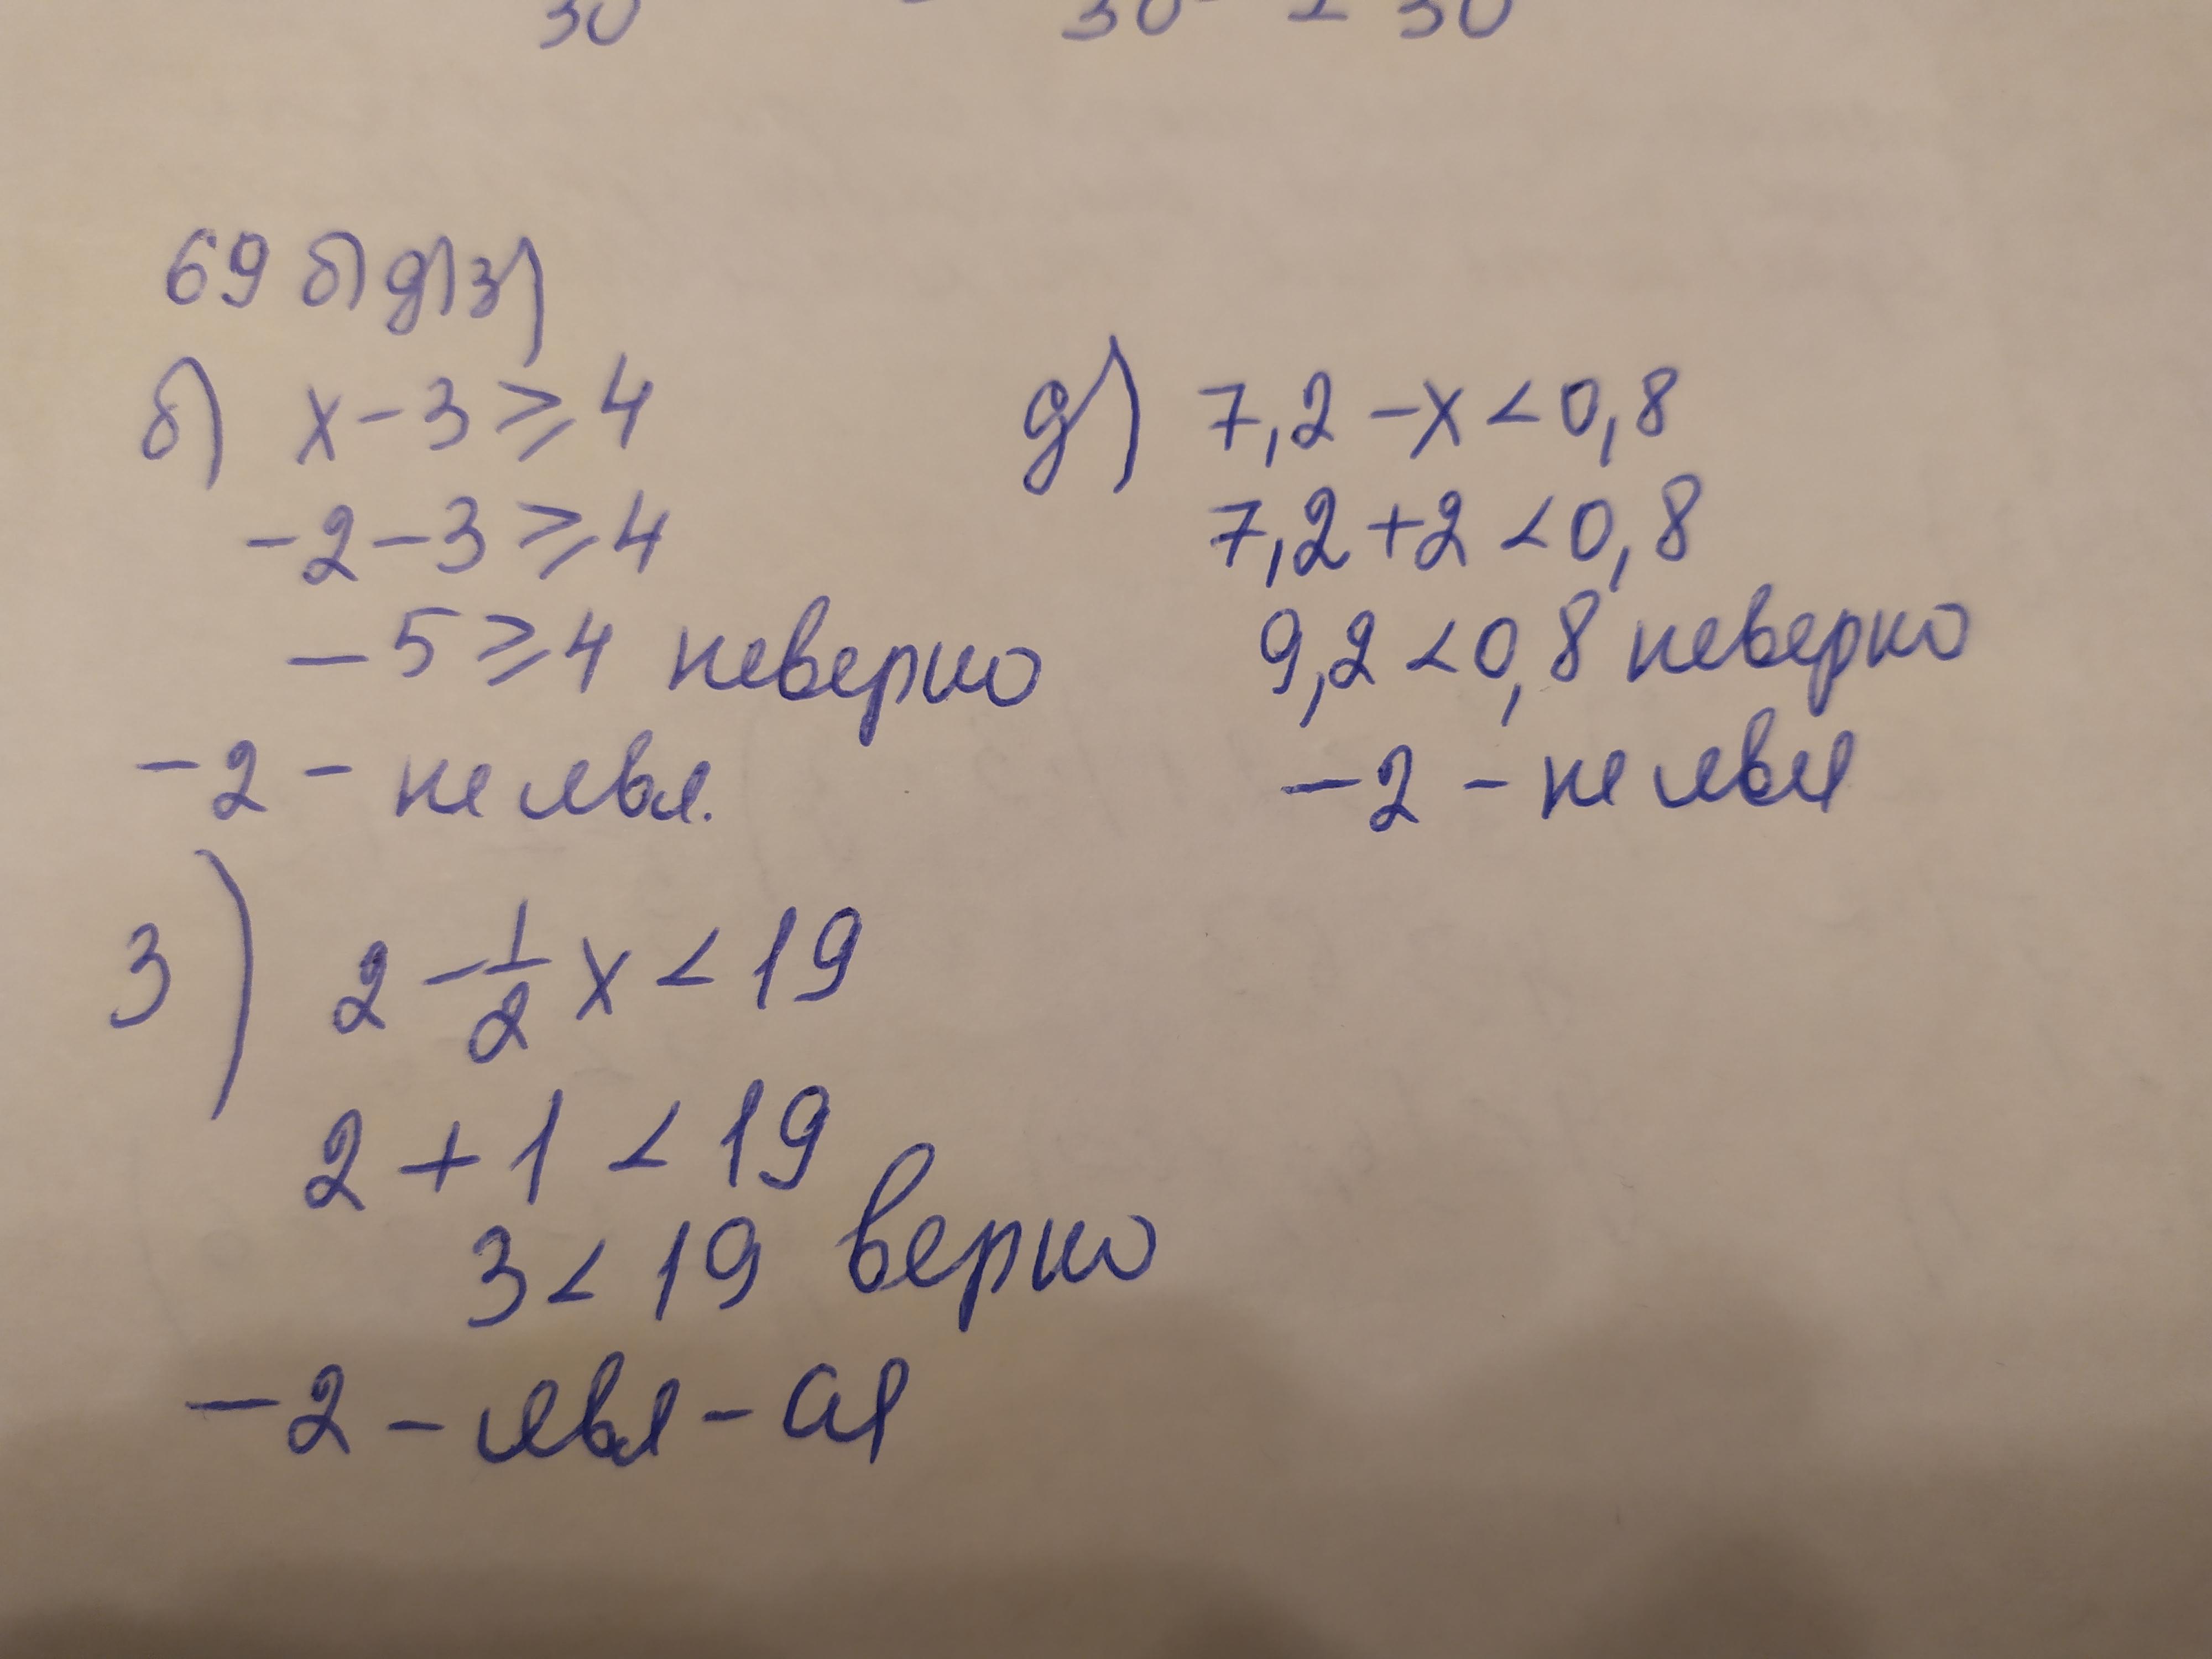 69 б) д) з)
б) x - 3 ⩾ 4
-2 - 3 ⩾ 4
-5 ⩾ 4 неверно
-2 - не явл.
д) 7,2 - x < 0,8
7,2 + 2 < 0,8
9,2 < 0,8 неверно
-2 - не явл
з) 2 - 1/2 x < 19
2 + 1 < 19
3 < 19 верно
-2 - явл-ся